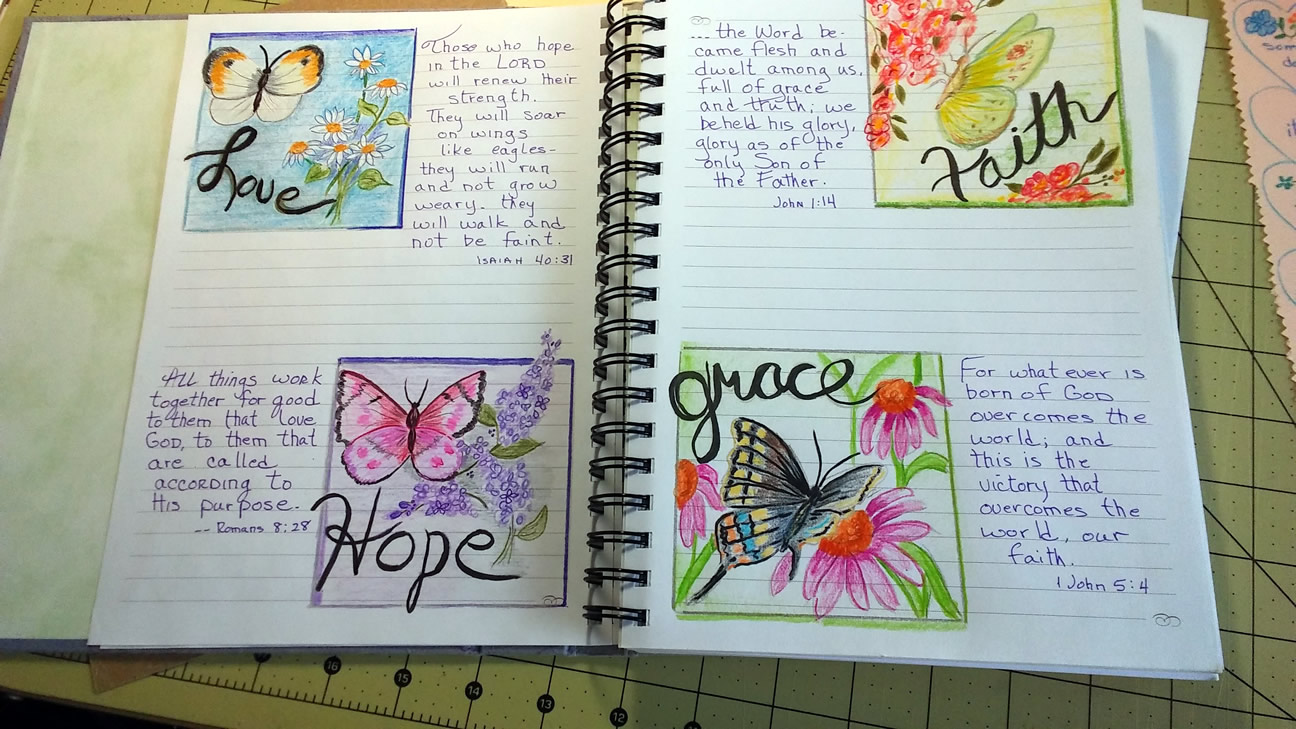 Love
Those who hope
in the LORD
will renew their
strength.
They will soar
on wings
like eagles-
they will run
and not grow
weary. they
will walk and
not be faint.
ISAIAH 40:31
All things work
together for good
to them that love
GOD, to them that
are called
according to
His purpose.
-- Romans 8:28
Hope
... the Word be-
came flesh and
dwelt among us,
full of grace
and truth; we
beheld his glory,
glory as of the
only Son of
the Father.
John 1:14
Faith
grace
For what ever is
born of GOD
overcomes the
world; and
this is the
victory that
overcomes the
world, our
faith.
1 John 5:4
16
15
14
13
12